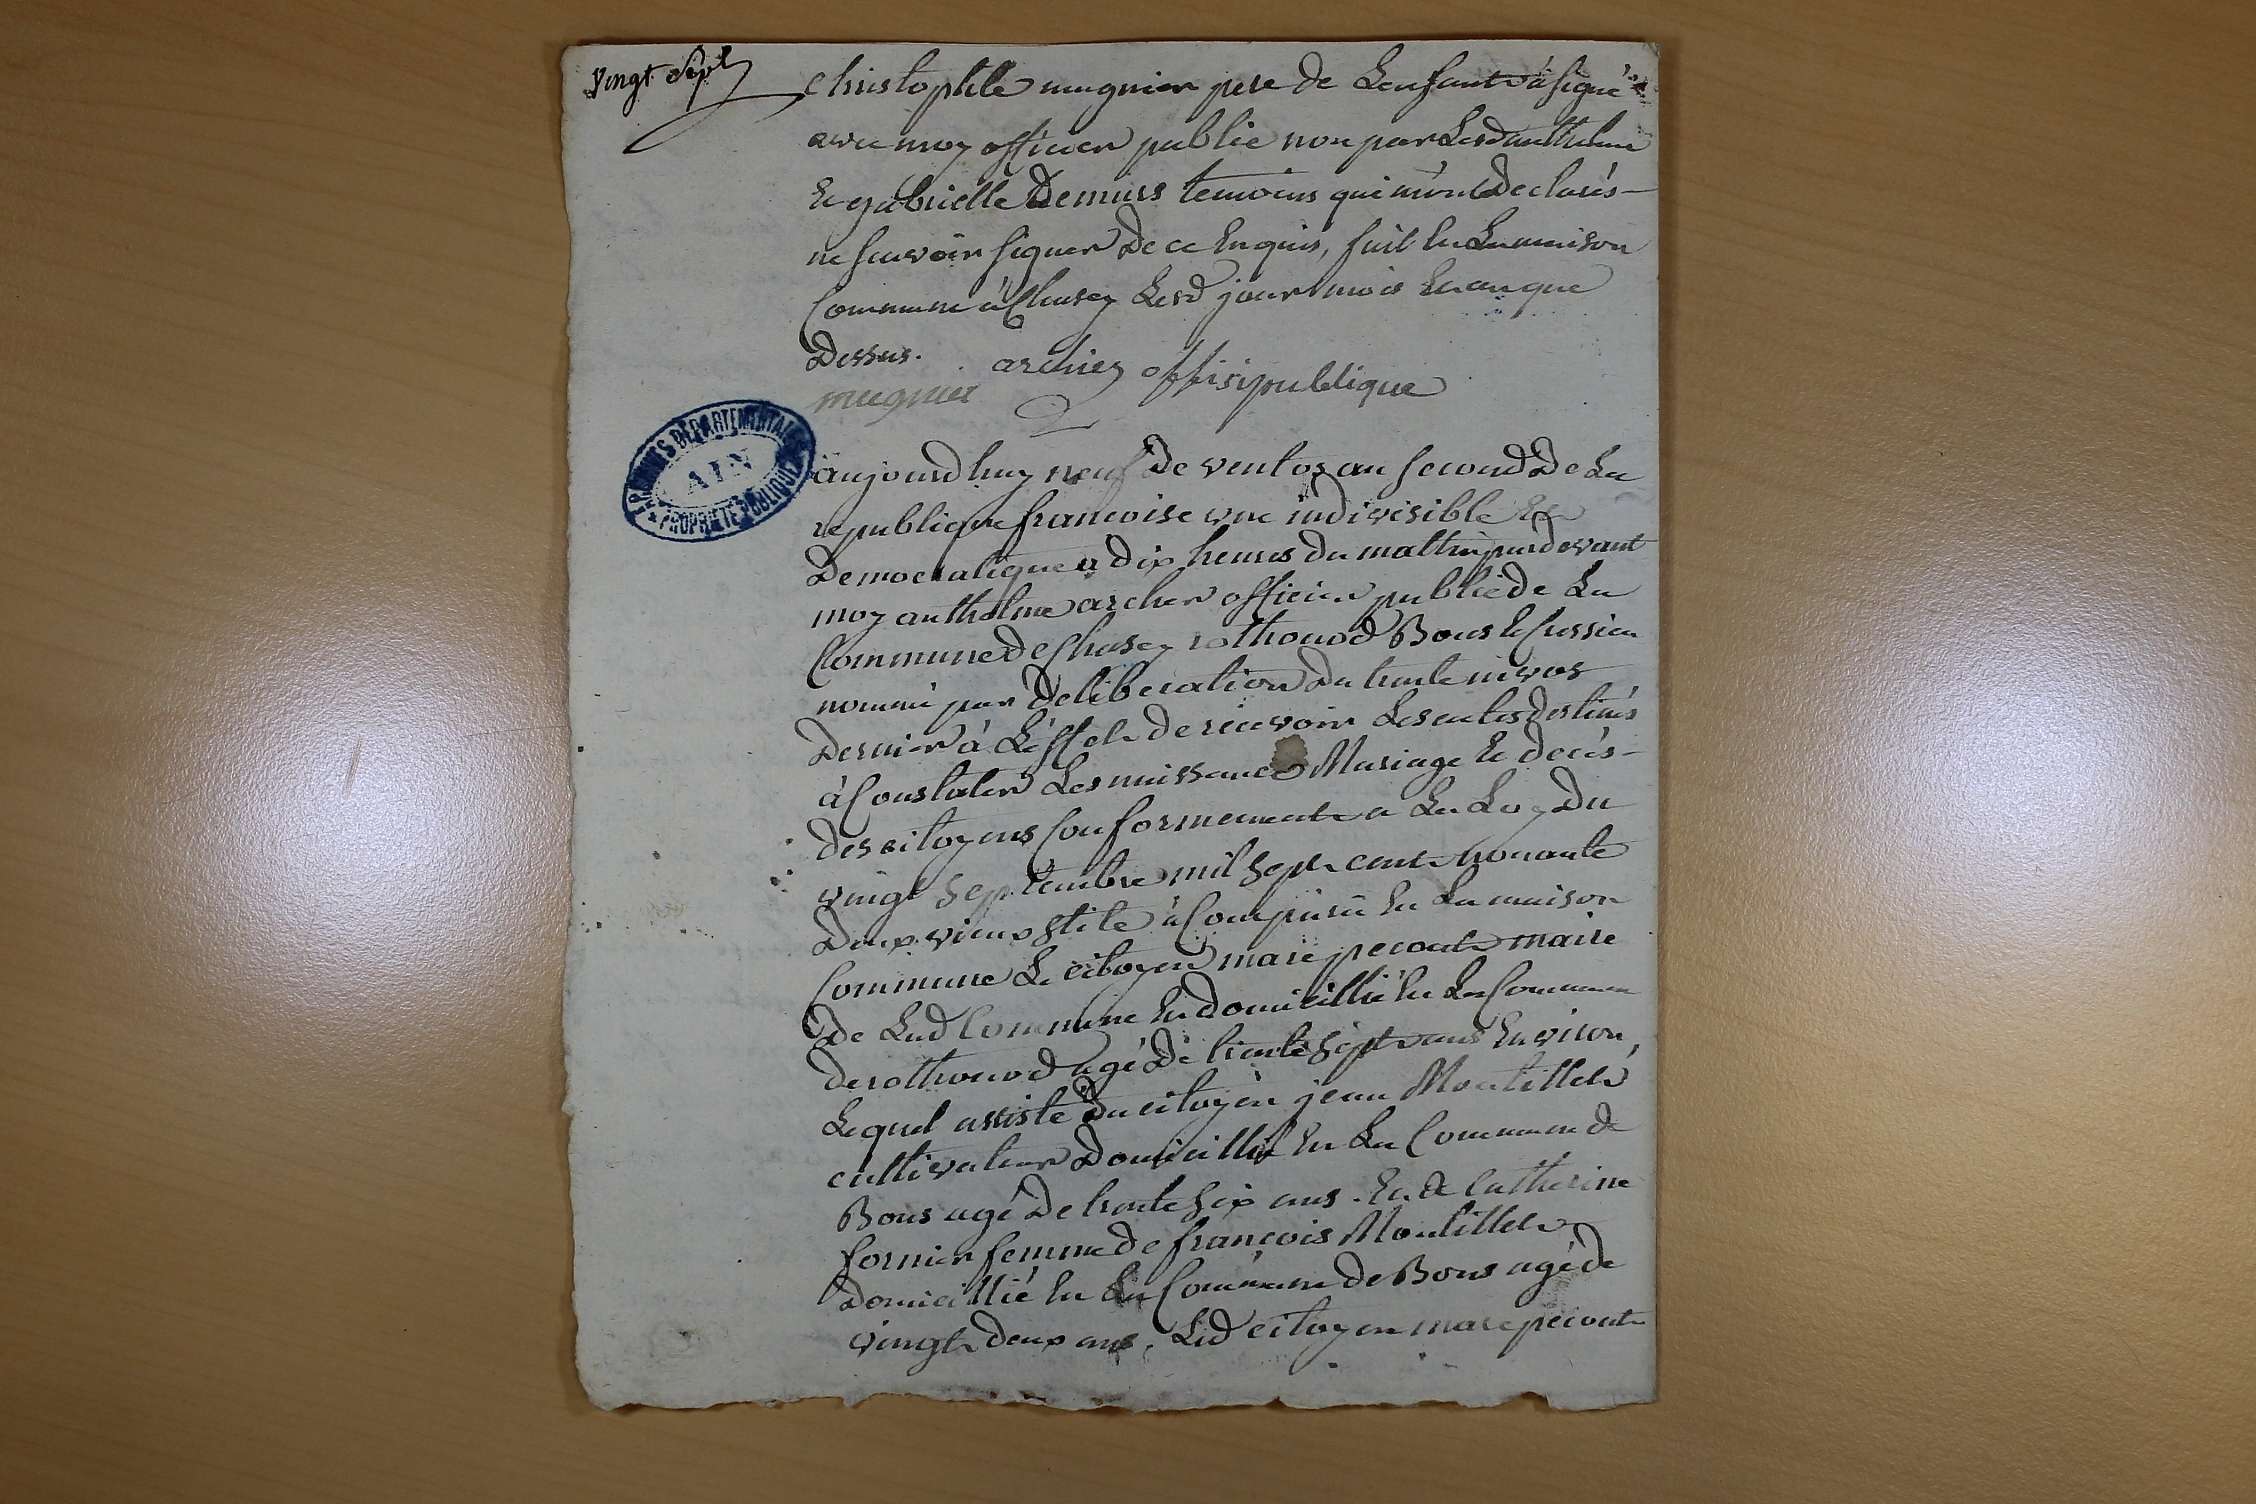 vingt sept
christophle mugnier pere de Lenfant à signé
avec moy officier public non par Lesd anthelme
Et gabrielle Demurs temoins qui m'ont Declarés
ne scavoir signer De ce Enquis, fait En La maison
Commune à Chasey Lesd jour mois Et an que
Dessus. archiez offisipublique
mugnier
ARCHIVES DÉPARTEMENTALES
AIN
* PROPRIÉTÉ PUBLIQUE *
aujourdhuy neuf De ventos an second De La
republique francoise une indivisible Et
Democratique a dix heures du mattin pardevant
moy anthelme archer officier public de La
Commune de Chasey rothonod Bons Et Cressieu
nommé par Deliberation Du trente nivos
Dernier à L'effet De recevoir Les actes destinés
à Constater Les naissance Mariage Et decès
des citoyens Conformement a La Loy Du
vingt Septembre mil Sept cent nonante
Deux vieux stile à Comparu En La maison
Commune Le citoyen marc pecout maire
De Lad Commune En domicillié En La Commune
de rothonod agé De trente Sept ans Environ,
Lequel assisté Du citoyen jean Montillet
cultivateur Domicillié En La Commune de
Bons agé De trente Six ans. Et de Catherine
fornier femme de francois Montillet
Domicillié En La Commune de Bons agé de
vingt deux ans, Led citoyen marc pecout